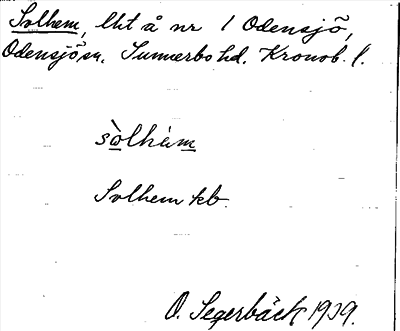 Solhem, lht å nr 1 Odensjö,
Odensjö sn. Sunnerbo hd. Kronob. l.
sòlhém
Solhem kb.
O. Segerbäck 1939.